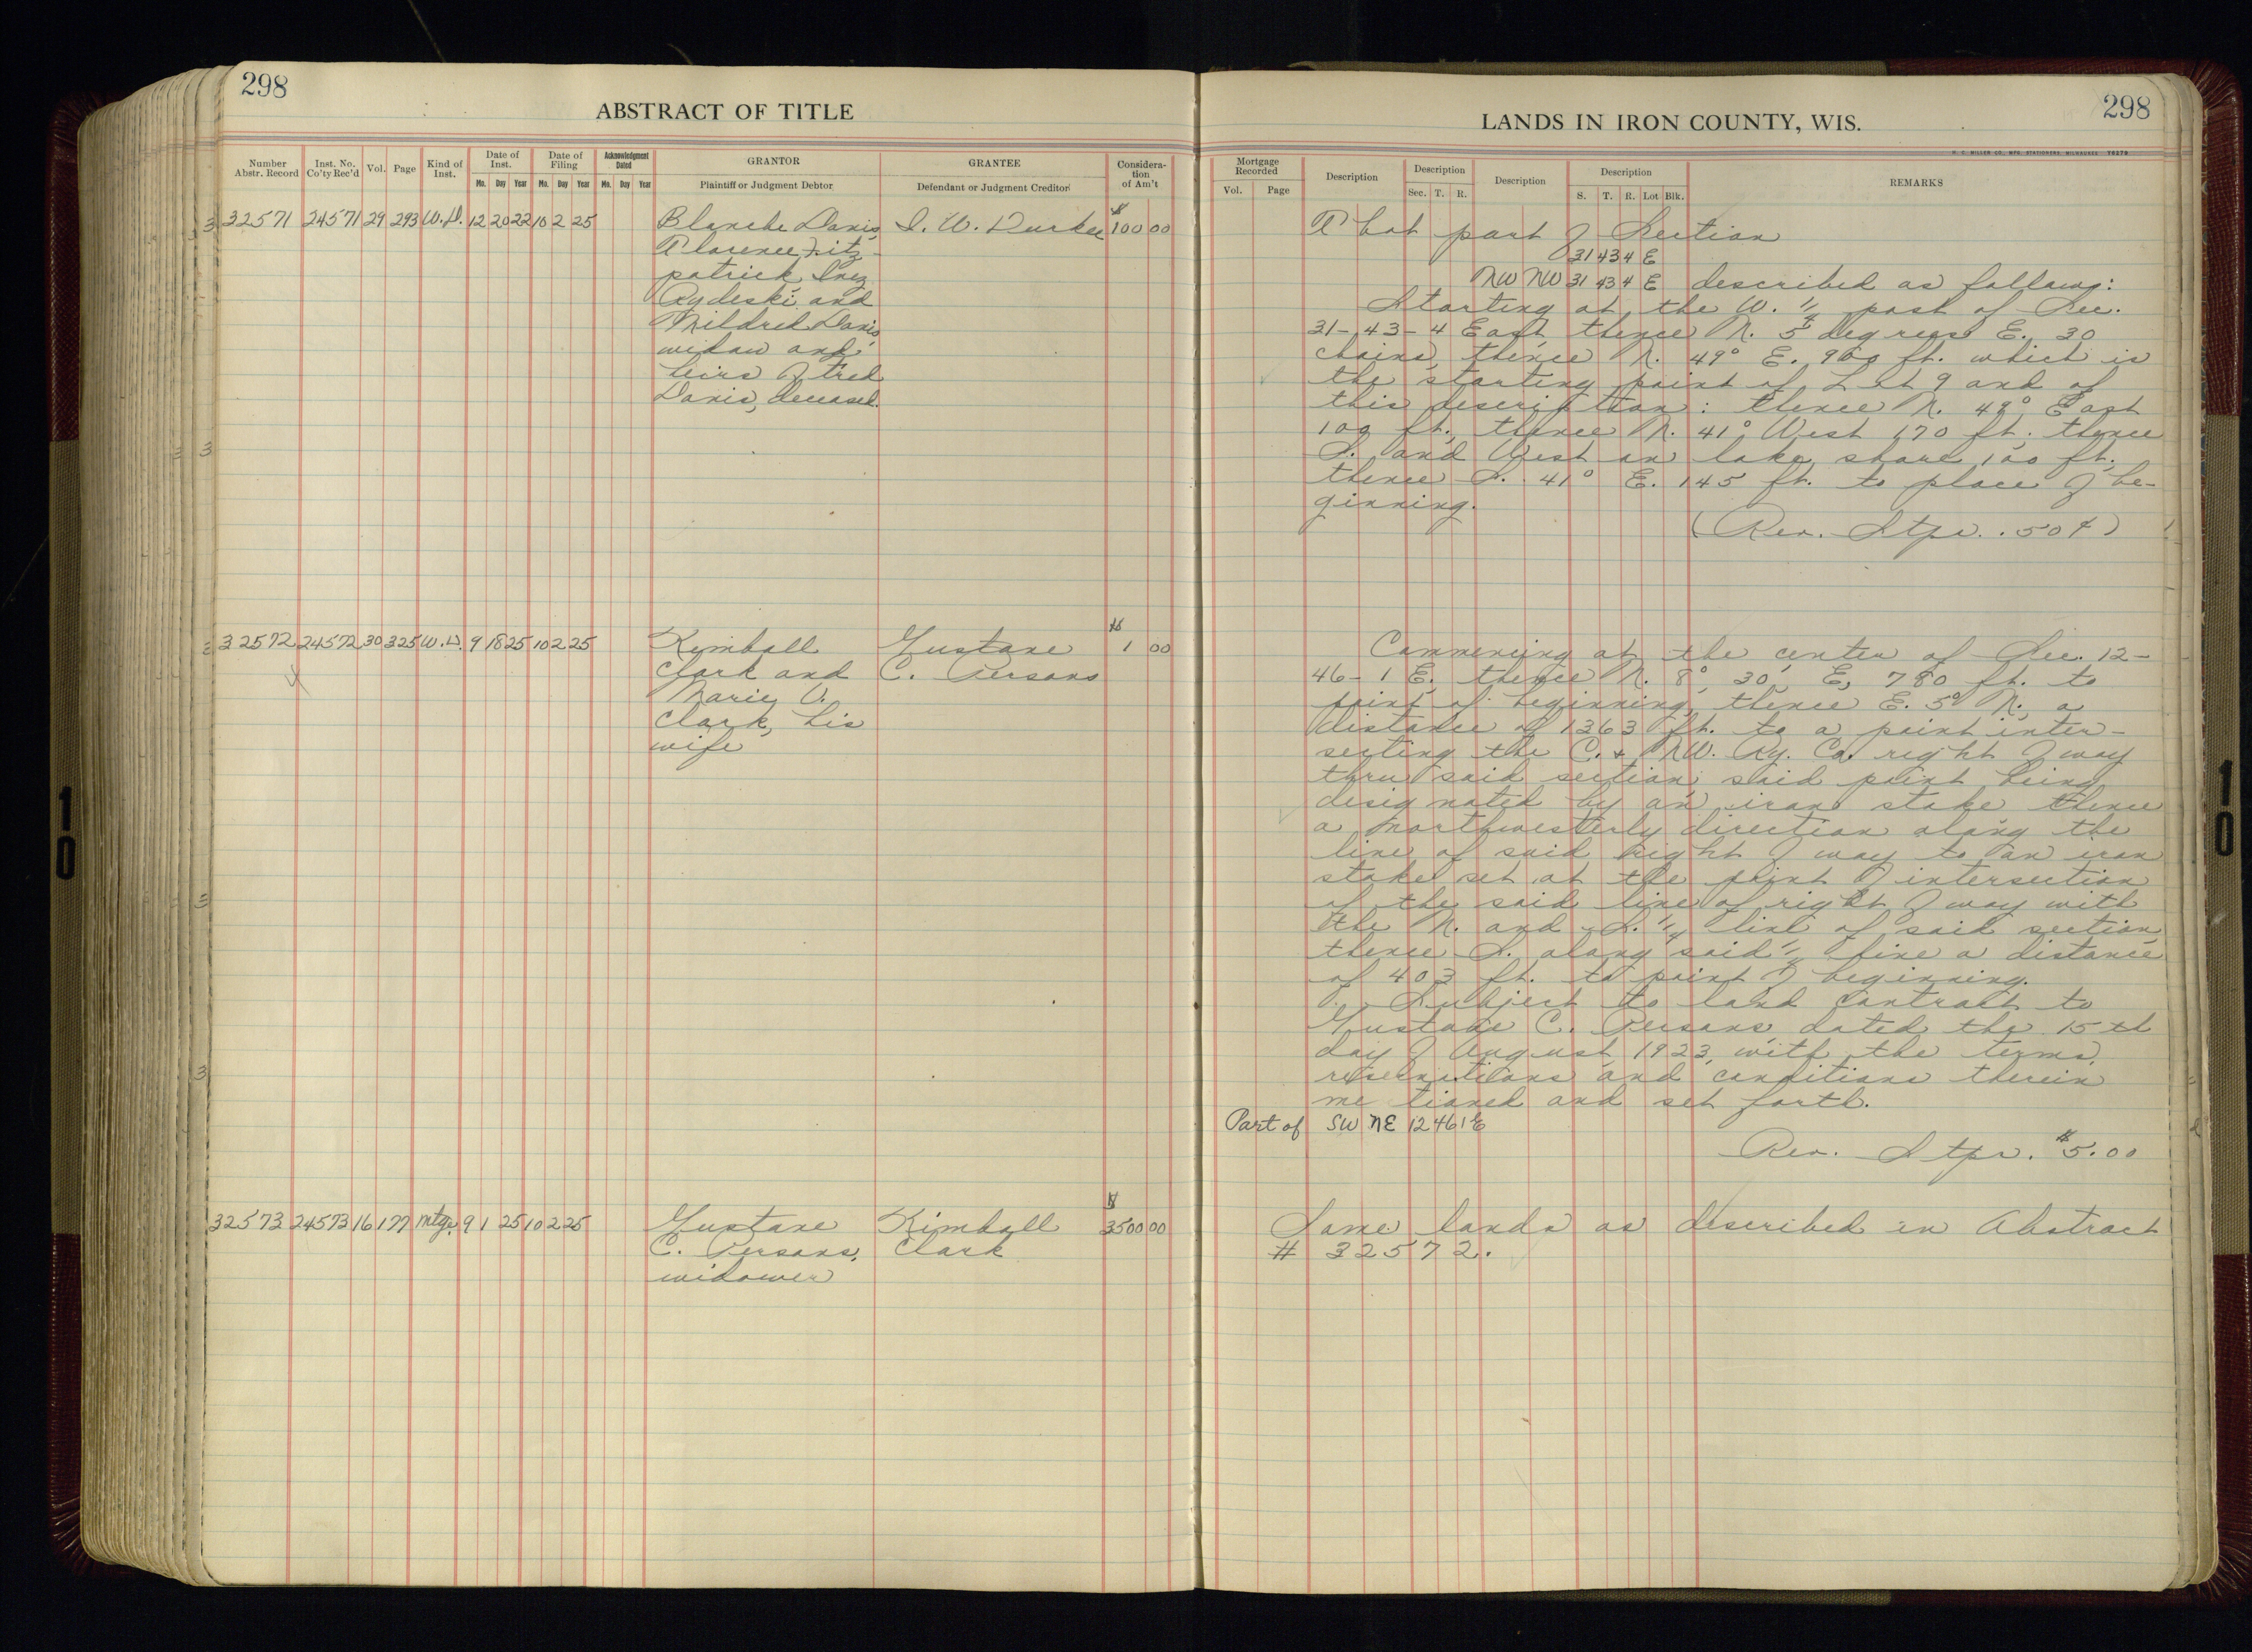 298
ABSTRACT OF TITLE
Number Abstr. Record
Inst. No. Co'ty Rec'd
Vol.
Page
Kind of Inst.
Date of Inst.
Mo. Day Year
Date of Filing
Mo. Day Year
Acknowledgment Dated
Mo. Day Year
GRANTOR
Plaintiff or Judgment Debtor
GRANTEE
Defendant or Judgment Creditor
Consideration of Am't
32571 24571 29 293 W.D. 12 20 22 10 2 25 Blanche Davis, I. W. Durkee $100 00
Clarence Fitz-
patrick, Inez
Rydeski and
Mildred Davis,
widow and
heirs of Fred
Davis, deceased.
32572 24572 30 325 W.D. 9 18 25 10 2 25 Kimball Gustave $1 00
Clark and C. Persons
Marie V.
Clark, his
wife
32573 24573 16 177 Mtge. 9 1 25 10 2 25 Gustave Kimball $3500 00
C. Persons, Clark
widower
298
LANDS IN IRON COUNTY, WIS.
H. C. MILLER CO., MFG. STATIONERS, MILWAUKEE 76270
Mortgage Recorded
Vol. Page
Description
Description
Sec. T. R.
Description
Description
S. T. R. Lot Blk.
REMARKS
That part of Section
31 43 4 E
NW NW 31 43 4 E described as follows:
Starting at the W. 1/4 post of Sec.
31-43-4 East, thence N. 5 degrees E. 30
chains, thence N. 49° E. 900 ft. which is
the starting point of Lot 9 and of
this description: thence N. 49° East
100 ft., thence N. 41° West 170 ft. thence
S. and West on lake shore 100 ft.
thence S. 41° E. 145 ft. to place of be-
ginning.
(Rev. Stps. .50¢)
Commencing at the center of Sec. 12-
46-1 E. thence N. 8° 30' E, 780 ft. to
point of beginning, thence E. 5° N., a
distance of 1363 ft. to a point inter-
secting the C. & NW. Ry. Co. right of way
thru said section; said point being
designated by an iron stake thence
a northwesterly direction along the
line of said right of way to an iron
stake set at the point of intersection
of the said line of right of way with
the N. and S. 1/4 line of said section
thence S. along said 1/4 line a distance
of 403 ft. to point of beginning.
Subject to land contract to
Gustave C. Persons, dated the 15th
day of August, 1923, with the terms,
reservations and conditions therein
me tioned and set forth.
Part of SW NE 12 46 1 E
Rev. Stps. $5.00
Same lands as described in Abstract
# 32572.